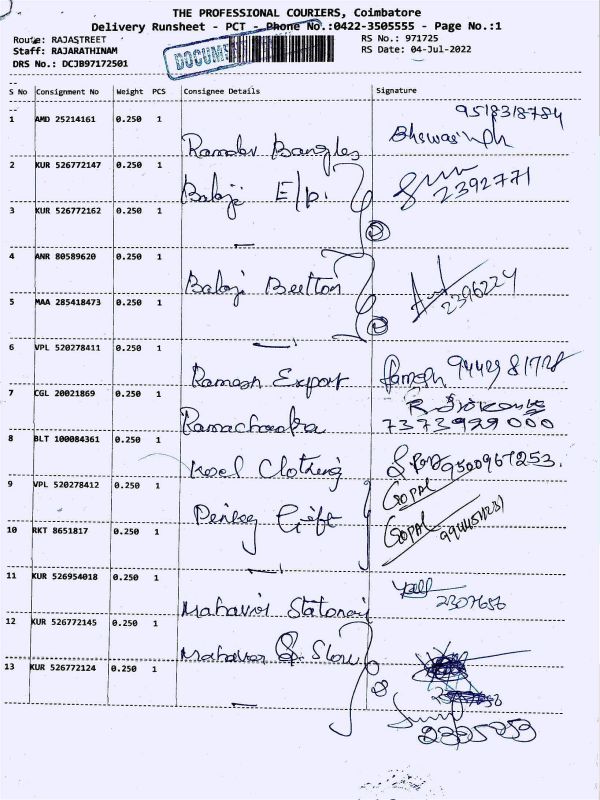 THE PROFESSIONAL COURIERS, Coimbatore
Delivery Runsheet - PCT - Phone No.:0422-3505555 - Page No.:1
Route: RAJASTREET RS No.: 971725
Staff: RAJARATHINAM RS Date: 04-Jul-2022
DRS No.: DCJB97172501
DOCUM
S No Consignment No Weight PCS Consignee Details Signature
1 AMD 25214161 0.250 1 Ramdev Bangles 9518318784
2 KUR 526772147 0.250 1 Balaji E/p. 2392771
3 KUR 526772162 0.250 1
4 ANR 80589620 0.250 1 Balaji Button 2396224
5 MAA 285418473 0.250 1
6 VPL 520278411 0.250 1 Ramesh Export Ramesh 9442981728
7 CGL 20021869 0.250 1 Ramachandra 7373929000
8 BLT 100084361 0.250 1 Clothing 9500967253.
9 VPL 520278412 0.250 1 Gift GOPAL
10 RKT 8651817 0.250 1 GOPAL
11 KUR 526954018 0.250 1 Mahavir 2307656
12 KUR 526772145 0.250 1
13 KUR 526772124 0.250 1 2395959